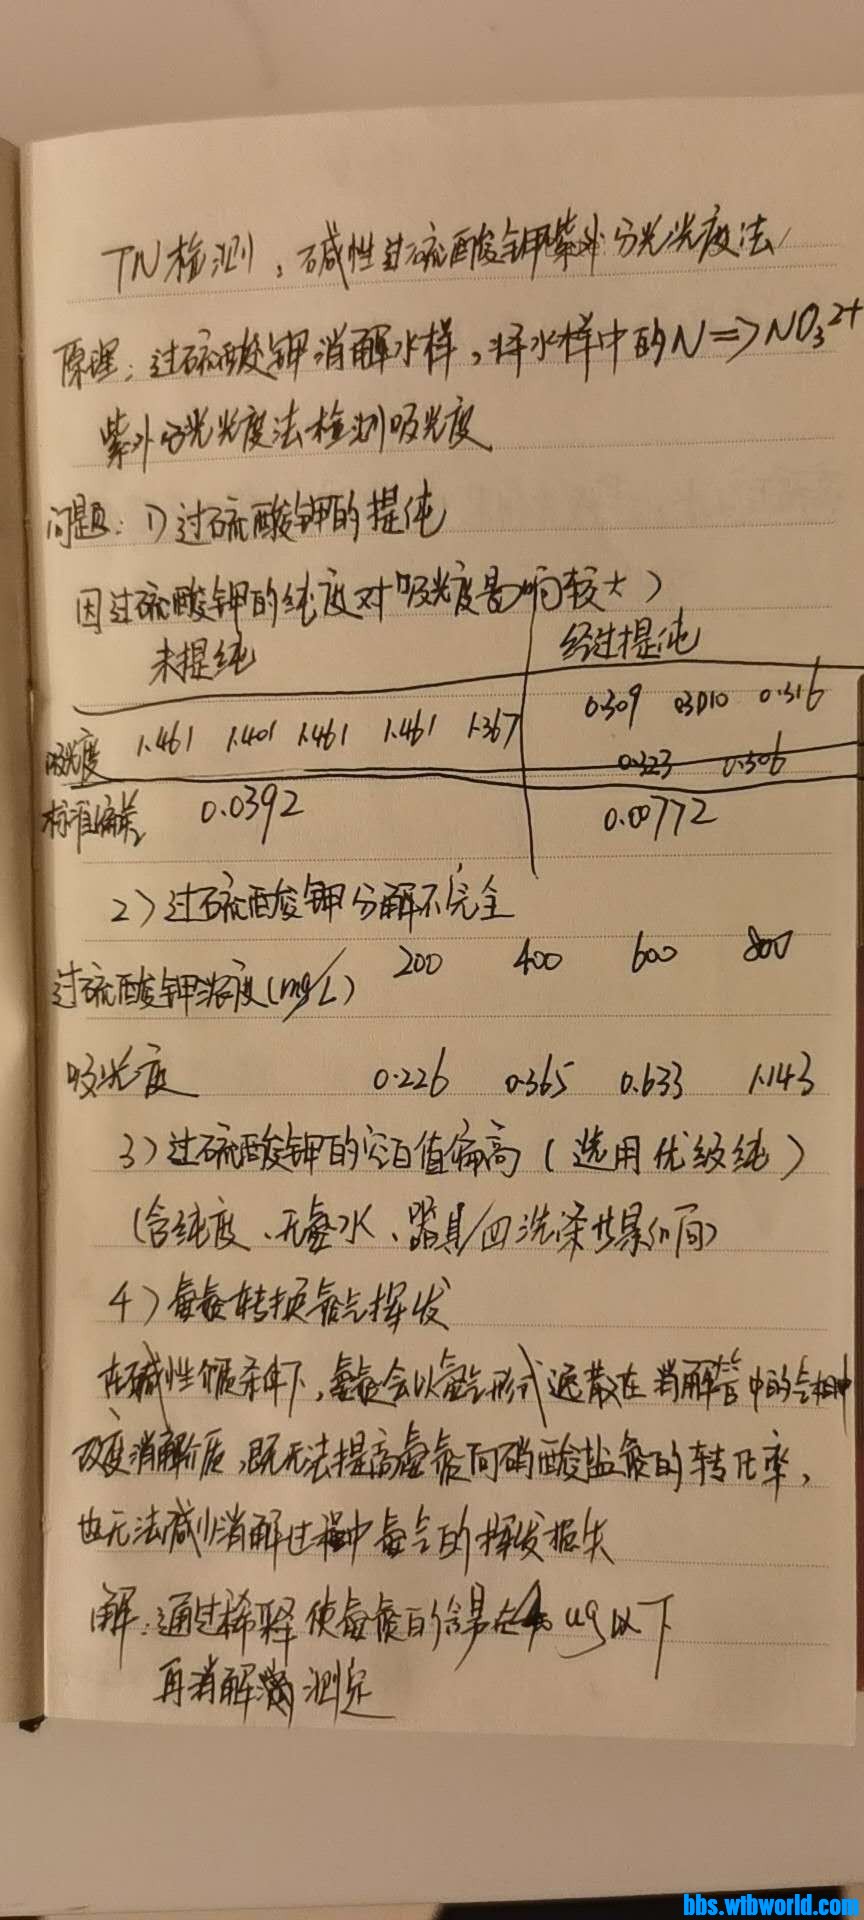 TN检测，碱性过硫酸钾紫外分光光度法
原理：过硫酸钾消解水样，将水样中的N=>NO₃²⁺
紫外分光光度法检测吸光度
问题：1）过硫酸钾的提纯
因过硫酸钾的纯度对吸光度影响较大）
未提纯 经过提纯
0.309 0.316
吸光度 1.461 1.401 1.461 1.461 1.367
0.323 0.306
标准偏差 0.0392 0.00772
2）过硫酸钾分解不完全
200 400 600 800
过硫酸钾浓度(mg/L)
吸光度 0.226 0.365 0.633 1.143
3）过硫酸钾的空白值偏高（选用优级纯）
（含纯度、无氨水、器具/皿洗涤
4）氨氮转换氨气挥发
在碱性介质条件下，氨氮会以氨气形式逸散在消解管中的气相中
消解介质，既无法提高氨氮向硝酸盐氮的转化率，
也无法减少消解过程中氨气的挥发损失
解：通过稀释使氨氮的含量在 ug以下
再消解 测定
bbs.wtbworld.com